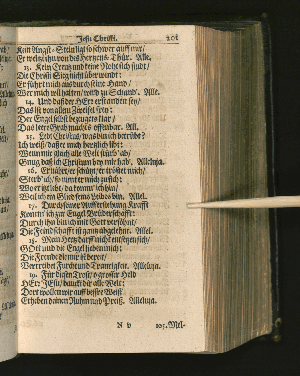 Jesu Christi. 201
Kein Angst-Stein ligt so schwer auff mir/
Er weltzt ihn von des Hertzens-Thür. Alle.
13. Kein Creutz und keine Noht sich findt/
Die Christi Sieg nicht überwindt:
Er führt mich aus durch seine Hand/
Wer mich will halten/ wird zu Schand. Alle.
14. Und daß der HErr erstanden sey/
Das ist von allem Zweifel frey:
Der Engel selbst bezeugt es klar/
Das leere Grab macht es offenbar. All.
15. Lebt Christus/ was bin ich betrübt?
Ich weiß/ daß er mich hertzlich liebt:
Wenn mir gleich alle Welt stürb ab/
Gnug daß ich Christum bey mir hab. Alleluja.
16. Er nährt/ er schützt/ er tröstet mich/
Sterb ich/ so nimt er mich zu sich:
Wo er ist lebt/ da komm ich hin/
Weil ich ein Glied seins Leibes bin. Allel.
17. Durch seiner Aufferstehung Krafft
Komm ich zur Engel Brüderschafft:
Durch ihn bin ich mit Gott versöhnt/
Die Feindschafft ist gantz abgelehnt. Allel.
18. Mein Hertz darff nicht entsetzen sich/
GOtt und die Engel lieben mich:
Die Freude die mir ist bereit/
Vertreibet Furcht und Traurigkeit. Alleluja.
19. Für diesen Trost/ o grosser Held
HErr JEsu/ danckt dir alle Welt:
Dort wollen wir auff besser Weiß/
Erheben deinen Ruhm und Preiß. Alleluja.
N v 105. Mel-